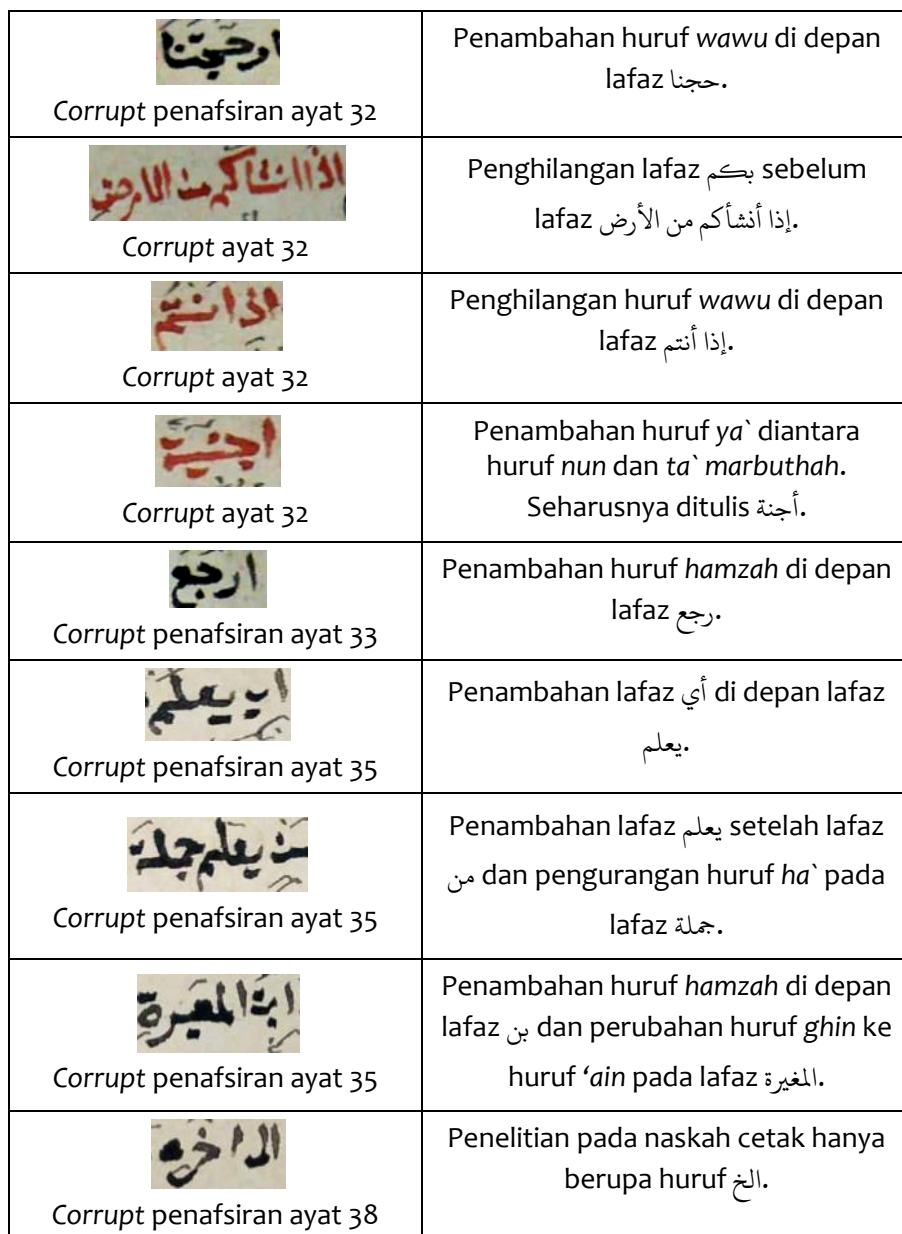 Corrupt penafsiran ayat 32
Penambahan huruf wawu di depan
lafaz حجنا.
اذا انشاكم من الارض
Corrupt ayat 32
Penghilangan lafaz بكم sebelum
lafaz إذا أنشأكم من الأرض.
اذا انتم
Corrupt ayat 32
Penghilangan huruf wawu di depan
lafaz إذا أنتم.
اجنية
Corrupt ayat 32
Penambahan huruf ya` diantara
huruf nun dan ta` marbuthah.
Seharusnya ditulis أجنة.
ارجع
Corrupt penafsiran ayat 33
Penambahan huruf hamzah di depan
lafaz رجع.
اي يعلم
Corrupt penafsiran ayat 35
Penambahan lafaz أي di depan lafaz
يعلم.
من يعلم جملة
Corrupt penafsiran ayat 35
Penambahan lafaz يعلم setelah lafaz
من dan pengurangan huruf ha` pada
lafaz جملة.
ابن المعيرة
Corrupt penafsiran ayat 35
Penambahan huruf hamzah di depan
lafaz بن dan perubahan huruf ghin ke
huruf ‘ain pada lafaz المغيرة.
Corrupt penafsiran ayat 38
Penelitian pada naskah cetak hanya
berupa huruf الخ.